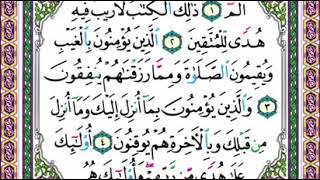 الٓمٓ ۝١ ذَٰلِكَ ٱلْكِتَٰبُ لَا رَيْبَ فِيهِ
هُدًى لِّلْمُتَّقِينَ ۝٢ ٱلَّذِينَ يُؤْمِنُونَ بِٱلْغَيْبِ
وَيُقِيمُونَ ٱلصَّلَوٰةَ وَمِمَّا رَزَقْنَٰهُمْ يُنفِقُونَ
۝٣ وَٱلَّذِينَ يُؤْمِنُونَ بِمَآ أُنزِلَ إِلَيْكَ وَمَآ أُنزِلَ
مِن قَبْلِكَ وَبِٱلْءَاخِرَةِ هُمْ يُوقِنُونَ ۝٤ أُو۟لَٰٓئِكَ
عَلَىٰ هُدًى مِّن رَّبِّهِمْ وَأُو۟لَٰٓئِكَ هُمُ